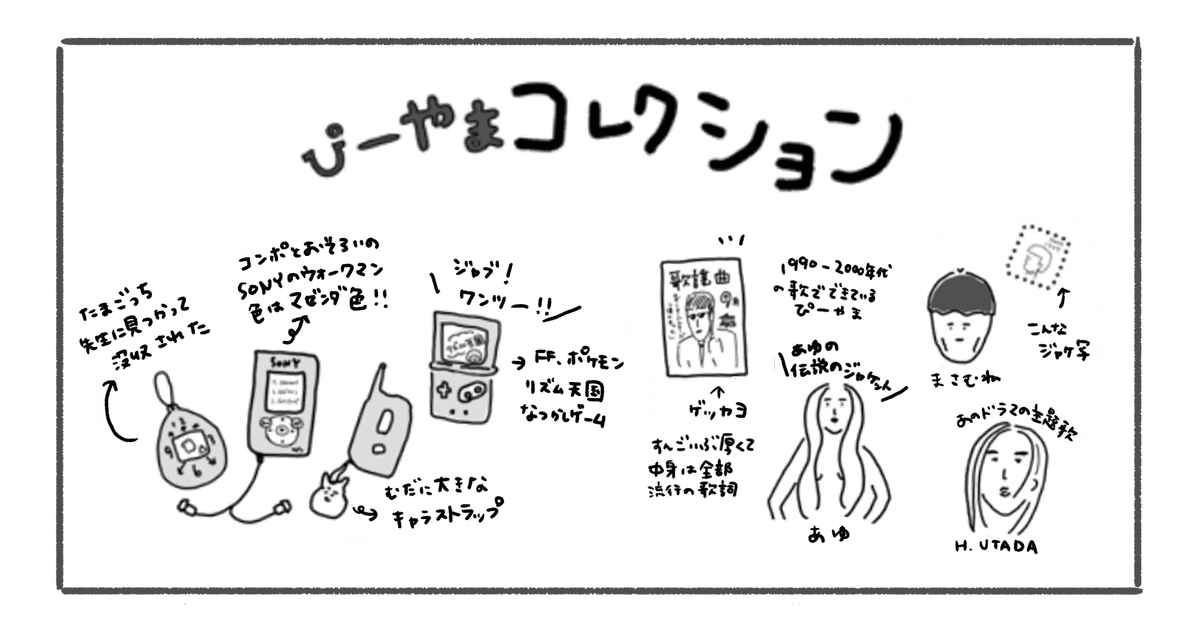 ぴーやまコレクション
たまごっち
先生に見つかって
没収された
コンポとおそろいの
SONYのウォークマン
色はマゼンダ色!!
SONY
ジャブ!
ワンツー!!
リズム天国
→ FF、ポケモン
リズム天国
なつかしゲーム
むだに大きな
キャラストラップ
歌謡曲
9月
ゲッカヨ
すんごいぶ厚くて
中身は全部
流行の歌詞
1990-2000年代
の歌でできている
ぴーやま
あゆの
伝説のジャケさん
あゆ
まさむね
こんな
ジャケ写
あのドラマの主題歌
H. UTADA